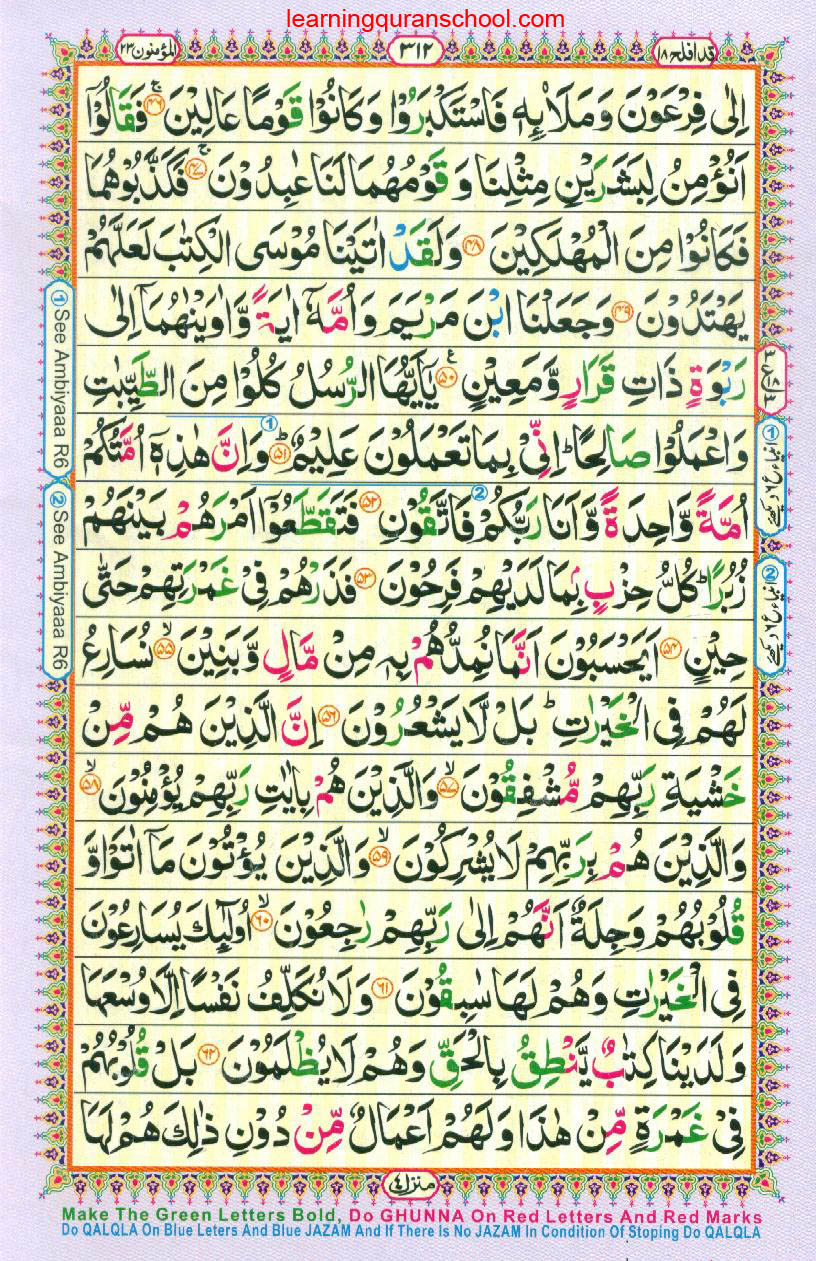 learningquranschool.com
قد افلح ١٨
٣١٢
المؤمنون ٢٣
اِلٰى فِرْعَوْنَ وَمَلَا۟ئِهٖ فَاسْتَكْبَرُوْا وَكَانُوْا قَوْمًا عَالِيْنَ ۚ‏﴿۴۶﴾ فَقَالُوْۤا
اَنُؤْمِنُ لِبَشَرَيْنِ مِثْلِنَا وَ قَوْمُهُمَا لَنَا عٰبِدُوْنَ ۚ‏﴿۴۷﴾ فَكَذَّبُوْهُمَا
فَكَانُوْا مِنَ الْمُهْلَكِيْنَ ﴿۴۸﴾ وَلَقَدْ اٰتَيْنَا مُوْسَى الْكِتٰبَ لَعَلَّهُمْ
يَهْتَدُوْنَ ﴿۴۹﴾ وَجَعَلْنَا ابْنَ مَرْيَمَ وَاُمَّهٗۤ اٰيَةً وَّاٰوَيْنٰهُمَاۤ اِلٰى
رَبْوَةٍ ذَاتِ قَرَارٍ وَّمَعِيْنٍ ﴿۵۰﴾ۧ يٰۤاَيُّهَا الرُّسُلُ كُلُوْا مِنَ الطَّيِّبٰتِ
وَاعْمَلُوْا صَالِحًا ؕ اِنِّىْ بِمَا تَعْمَلُوْنَ عَلِيْمٌ ؕ‏﴿۵۱﴾ وَاِنَّ هٰذِهٖۤ اُمَّتُكُمْ
اُمَّةً وَّاحِدَةً وَّاَنَا رَبُّكُمْ فَاتَّقُوْنِ ﴿۵۲﴾ فَتَقَطَّعُوْۤا اَمْرَهُمْ بَيْنَهُمْ
زُبُرًا ؕ كُلُّ حِزْبٍۭ بِمَا لَدَيْهِمْ فَرِحُوْنَ ﴿۵۳﴾ فَذَرْهُمْ فِىْ غَمْرَتِهِمْ حَتّٰى
حِيْنٍ ﴿۵۴﴾ اَيَحْسَبُوْنَ اَنَّمَا نُمِدُّهُمْ بِهٖ مِنْ مَّالٍ وَّبَنِيْنَ ۙ‏﴿۵۵﴾ نُسَارِعُ
لَهُمْ فِى الْخَيْرٰتِ ؕ بَلْ لَّا يَشْعُرُوْنَ ﴿۵۶﴾ اِنَّ الَّذِيْنَ هُمْ مِّنْ
خَشْيَةِ رَبِّهِمْ مُّشْفِقُوْنَ ۙ‏﴿۵۷﴾ وَالَّذِيْنَ هُمْ بِاٰيٰتِ رَبِّهِمْ يُؤْمِنُوْنَ ۙ‏﴿۵۸﴾
وَالَّذِيْنَ هُمْ بِرَبِّهِمْ لَا يُشْرِكُوْنَ ۙ‏﴿۵۹﴾ وَالَّذِيْنَ يُؤْتُوْنَ مَاۤ اٰتَوْا وَّ
قُلُوْبُهُمْ وَجِلَةٌ اَنَّهُمْ اِلٰى رَبِّهِمْ رٰجِعُوْنَ ۙ‏﴿۶۰﴾ اُولٰٓئِكَ يُسَارِعُوْنَ
فِى الْخَيْرٰتِ وَهُمْ لَهَا سٰبِقُوْنَ ﴿۶۱﴾ وَلَا نُكَلِّفُ نَفْسًا اِلَّا وُسْعَهَا
وَلَدَيْنَا كِتٰبٌ يَّنْطِقُ بِالْحَقِّ وَهُمْ لَا يُظْلَمُوْنَ ﴿۶۲﴾ بَلْ قُلُوْبُهُمْ
فِىْ غَمْرَةٍ مِّنْ هٰذَا وَلَهُمْ اَعْمَالٌ مِّنْ دُوْنِ ذٰلِكَ هُمْ لَهَا
منزل ٤
① See Ambiyaaa R6
② See Ambiyaaa R6
Make The Green Letters Bold, Do GHUNNA On Red Letters And Red Marks
Do QALQLA On Blue Leters And Blue JAZAM And If There Is No JAZAM In Condition Of Stoping Do QALQLA